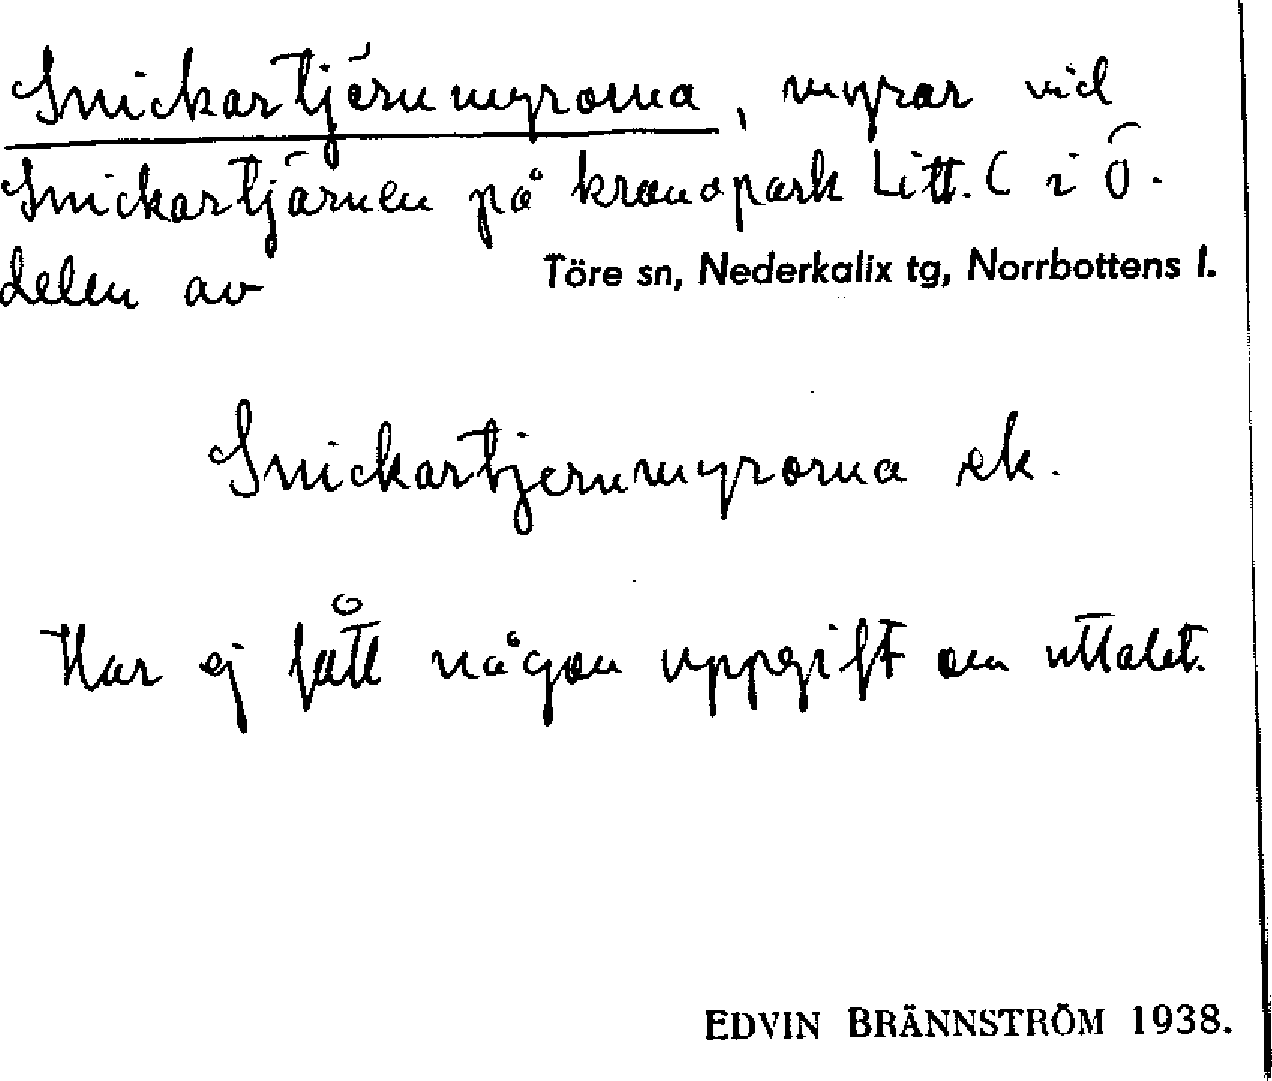 Snickartjärnmyrorna, myrar vid
Snickartjärnen på kronopark Litt. C i Ö.
delen av Töre sn, Nederkalix tg, Norrbottens l.
Snickartjernmyrorna ek.
Har ej fått någon uppgift om uttalet.
EDVIN BRÄNNSTRÖM 1938.